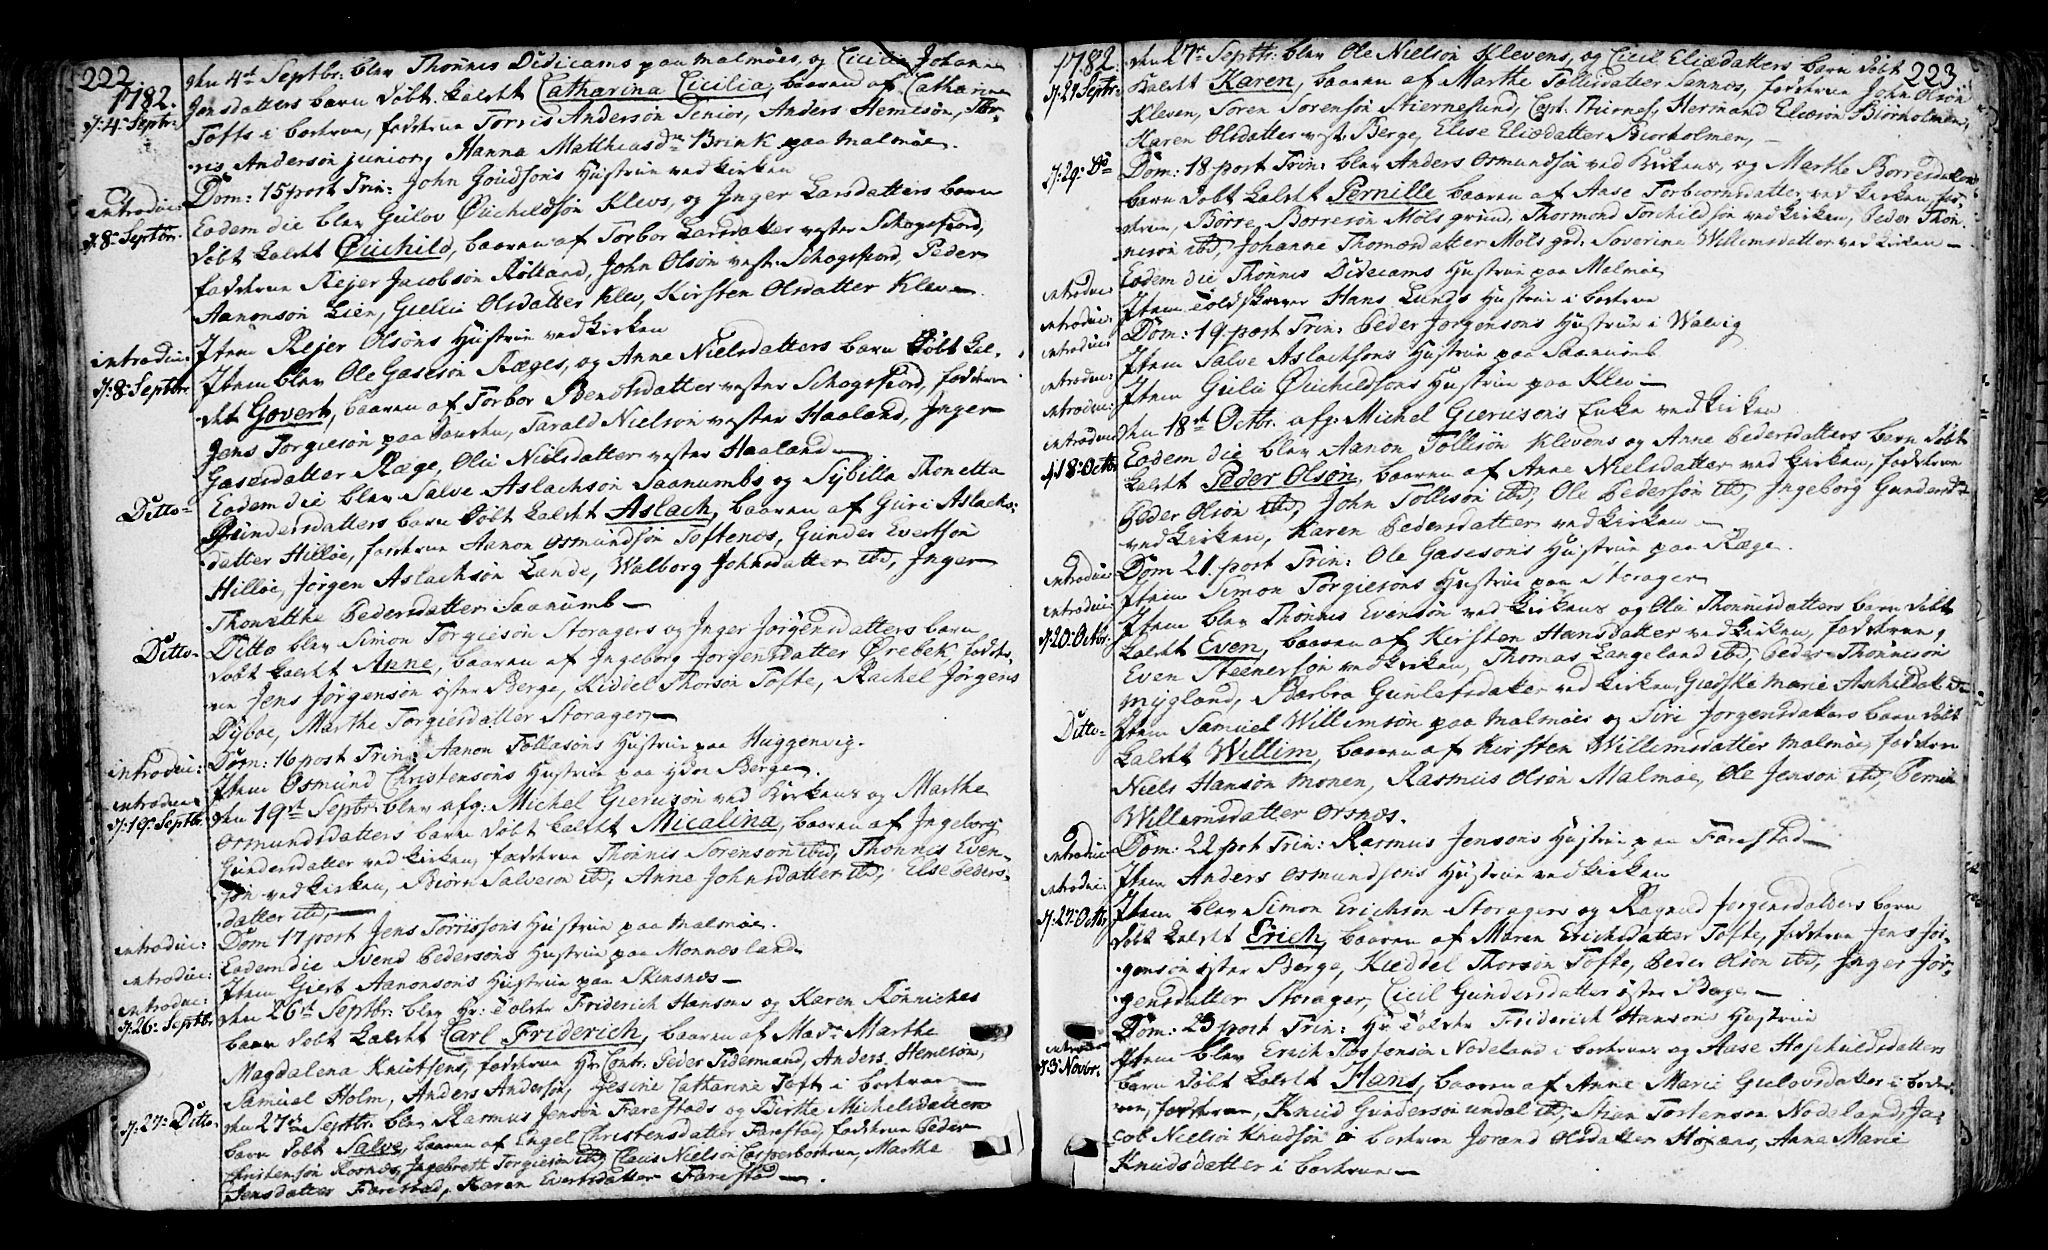 222.
1782.
d: 4 Septr:
den 4de Septbr: blev Thonnes Didicams paa Malmøes, og Cicilia Johanne
Jensdatters barn døbt kaldet Catharina Cicilia, baaren af Catharina
Tofts i boehrun, fadderne Torris Andersøn Senior, Anders Hemesøn, Tor-
ris Andersøn junior, Hanna Matthiasdr Brink paa Malmøe.
introduc:
Dom: 15 post Trin: John Goudsøns Hustrue ved Kirken
d. 8. Septbr:
Eodem die blev Gulov Øuchildsøn Klevs, og Inger Larsdatters barn
døbt kaldet Øuchild, baaren af Torbor Larsdatter vester Schogsfiord,
fadderne Rejer Jacobsøn Rølland, John Olsøn vest: Schogsfiord, Peder
Aanonsøn Lien, Gullu Olsdatter Klev, Kirsten Olsdatter Klev.
introduc:
Item Rejer Olsøns Hustrue ved Kirken
d: 8. Septbr.
Item blev Ole Gasesøn Ræges, og Anne Nielsdatters barn døbt kal-
det Govert, baaren af Torbor Bendtsdatter vester Schogsfiord, fadderne
Jens Torgiesøn paa Sanden, Tarald Nielsøn vester Haaland, Inger
Gasesdatter Ræge, Olu Nielsdatter vester Haaland
Ditto-
Eodem die blev Salve Aslachsøn Saanumbs og Sybilla Thonetta
Gundersdatters barn døbt kaldet Aslach, baaren af Guri Aslachs-
datter Hilløe, fadderne Aanon Osmundsøn Toftenes, Gunder Evertsøn
Hilløe, Jørgen Aslachsøn Lande, Walborg Johnsdatter ibd, Inger
Thonethe Pedersdatter Saanumb
Ditto-
Ditto blev Simon Torgiesøn Storagers og Inger Jørgensdatters barn
døbt kaldet Anne, baaren af Ingeborg Jørgensdatter Ørebek, fadde-
rne Jens Jørgensøn øster Berge, Kiddel Thorsøn Tofte, Rachel Jørgens
Dyboe, Marthe Torgiesdatter Storager
introduc:
Dom: 16 post Trin: Aanon Tollasøns Hustrue paa Huggenvig.
introduc:
Item Osmund Christensøns Hustrue paa ydre Berge.
d: 19. Septbr
den 19de Septbr: blev afg: Michel Gierusøn ved Kirkens og Marthe
Osmundsdatters barn døbt kaldet Micalina, baaren af Ingeborg
Gundersdatter ved Kirken, fadderne Thonnis Sørensøn ibd, Thonnis Even-
søn ved Kirken, Biørn Salvesøn ibd, Anne Johnsdatter ibd, Else Peders-
datter ibd,
introduc:
Dom 17 post Jens Torrissøns Hustrue paa Malmøe.
introduc:
Eodem die Svend Pedersøns Hustrue paa Monnesland
introduc:
Item Giert Aanonsøns Hustrue paa Skinsnes
d: 26. Septbr
den 26de Septbr: blev Hr: Tolder Friderich Hansøns og Karen Rønniches
barn døbt kaldet Carl Friderich, baaren af Mad. Marthe
Magdalena Knutsens, fadderne Hr. Contr. Peder Tidemand, Anders Hemesøn,
Samuel Holm, Anders Andersøn, Jesine Catharina Toft i boehrun
d: 27. Ditto.
den 27de Septbr: blev Rasmus Jensøn Farestads og Birthe Michelsdatters
barn døbt Salve, baaren af Engel Christensdatter Farestad, fadderne Peder
Christensøn Roones, Ingebrett Torgiesøn ibd, Claus Nielsøn Casper boehrun, Marthe
Jensdatter Farestad, Karen Evertsdatter Farestad.
1782
223
d: 27 Septr:
den 27de Septbr: blev Ole Nielsøn Klevens, og Cicil Eliædatters barn døbt
kaldet Karen, baaren af Marthe Tollisdatter Sannes, fadderne John Olsøn
Kleven, Søren Sørensøn Stiernesund, Capt: Thurnes, Hermand Eliæsøn Biørholmen,
Karen Olsdatter vest: Berge, Elise Eliædatter Biørholmen,
d: 29. Do
Dom: 18 post Trin: blev Anders Osmundsøn ved Kirkens, og Marthe Børresdatters
barn døbt kaldet Pernille baaren af Aase Torbiørnsdatter ved Kirken, fad-
derne, Børre Børresøn Molsgrund, Thormond Torchildsøn ved Kirken, Peder Thon-
nesøn ibd, Johanne Thomasdatter Mols grd: Soverina Willemsdatter ved Kirken
introduc:
Eodem die Thonnis Didicams Hustrue paa Malmøe
introduc:
Item Toldskriver Hans Lunds Hustrue i boehrun
introduc:
Dom: 19 post Trin: Peder Jørgensøns Hustrue i Walvig
introduc:
Item Salve Aslachsøns Hustrue paa Saanumb
introduc:
Item Gulu Øuchildsøns Hustrue paa Klev
introduc:
den 18de Octbr. afg: Michel Gierusøns Enke ved Kirken
d 18: Octbr
Eodem die blev Aanon Tollisøn Klevens og Anne Pedersdatters barn døbt
kaldet Peder Olsøn, baaren af Anne Nielsdatter ved Kirken, fadderne
Peder Olsøn ibd, John Tollisøn ibd, Ole Pedersøn ibd, Ingeborg Gundersdr
ved Kirken, Karen Pedersdatter ved Kirken
introduc:
Dom 21. post Trin: Ole Gasesøns Hustrue paa Ræge.
introduc:
Item Simon Torgiesøns Hustrue paa Storager
d. 20: Octbr:
Item blev Thonnis Evensøn ved Kirkens og Olu Thonnisdatters barn døbt
kaldet Even, baaren af Kirsten Hansdatter ved Kirken, fadderne,
Even Steenersøn ved Kirken, Thomas Langeland ibd, Peder Thonnisøn
Mygland, Barbra Gunlefsdatter ved Kirken, Giedske Marie Anhildat ibd
Ditto-
Item Samuel Willemsøn paa Malmøes og Siri Jørgensdatters barn døbt
kaldet Willim, baaren af Kirsten Willemsdatter Malmøe, fadderne
Niels Hansøn Monen, Rasmus Olsøn Malmøe, Ole Jensøn ibd, Pernille
Willemsdatter Orsnæs.
introduc:
Dom: 22 post Trin: Rasmus Jensøns Hustrue paa Farestad
introduc:
Item Anders Osmundsøns Hustrue ved Kirken
d: 27. Octbr
Item blev Simon Erichsøn Storagers og Ragnild Jørgensdatters barn
døbt kaldet Erich, baaren af Maren Erichsdatter Tofte, fadderne Jens Jør-
gensøn øster Berge, Kieddel Thorsøn Tofte, Peder Olsøn ibd, Inger Jør-
gensdatter Storager, Cicil Gundersdatter øster Berge
introduc:
Dom: 23 post Trin: Hr Tolder Friderich Hansøns Hustrue
d 3 Novbr.
Item blev Erich Tostensøn Nodeland i boehruns og Aase Høschuldsdatters
barn døbt kaldet Hans, baaren af Anne Marie Gulovsdatter i boeh-
run, fadderne, Knud Gundersøn undal ibd, Stian Tortensøn Nodeland, Ja-
cob Nielsøn Knudsøn i boehrun Jorand Olsdatter Høxaas, Anne Marie
Knudsdatter i boehrun